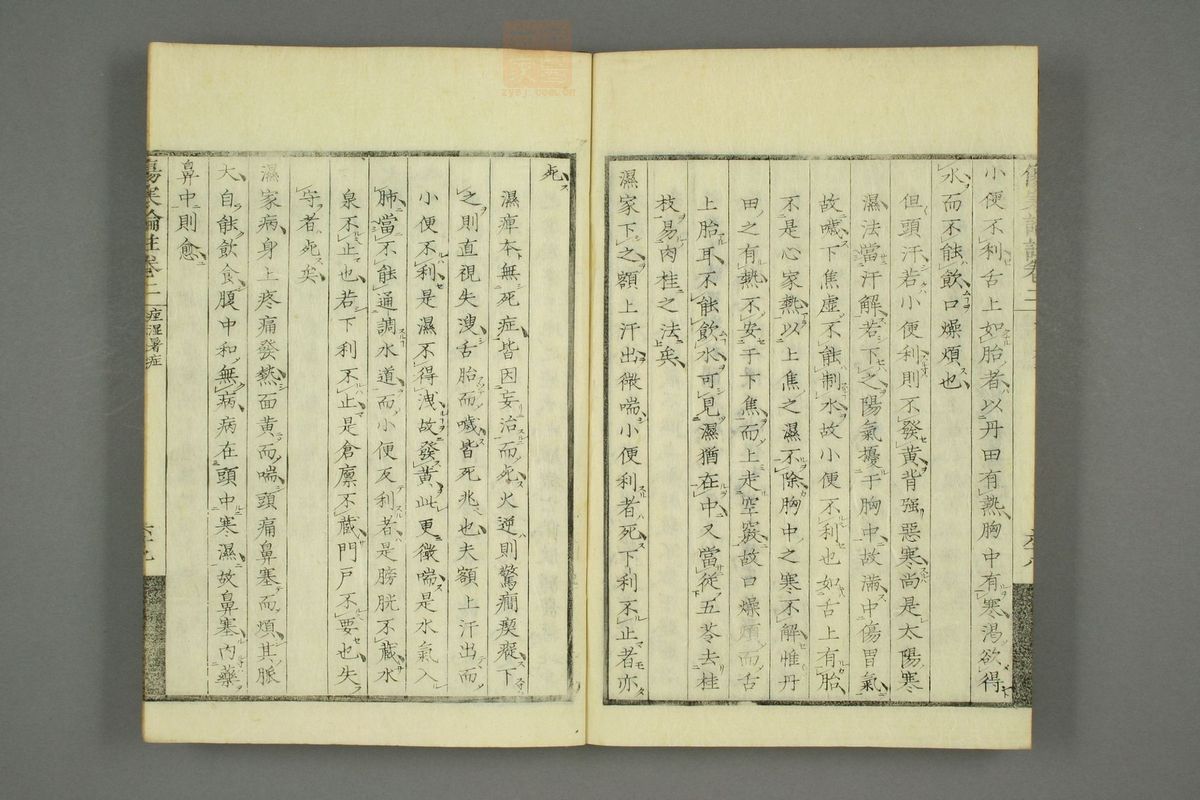 小便不利舌上如胎者以丹田有熱胸中有寒渴欲得
水而不能飲口燥煩也
但頭汗若小便利則不發黃背强惡寒尚是太陽寒
濕法當汗解若下之陽氣擾于胸中故滿中傷胃氣
故噦下焦虛不能制水故小便不利也如舌上有胎
不是心家熱以上焦之濕不除胸中之寒不解惟丹
田之有熱不安于下焦而上走空竅故口燥煩而舌
上胎耳不能飲水可見濕猶在中又當從五苓去桂
枝易肉桂之法矣
濕家下之額上汗出微喘小便利者死下利不止者亦
死
濕痺本無死症皆因妄治而死火逆則驚癎瘈瘲下
之則直視失溲舌胎而噦皆死兆也夫額上汗出而
小便不利是濕不得洩故發黃此更微喘是水氣入
肺當不能通調水道而小便反利者是膀胱不藏水
泉不止也若下利不止是倉廩不藏門戶不要也失
守者死矣
濕家病身上疼痛發熱面黃而喘頭痛鼻塞而煩其脈
大自能飲食腹中和無病病在頭中寒濕故鼻塞內藥
鼻中則愈
傷寒論註卷二
痙濕暑症
zysj.com.cn